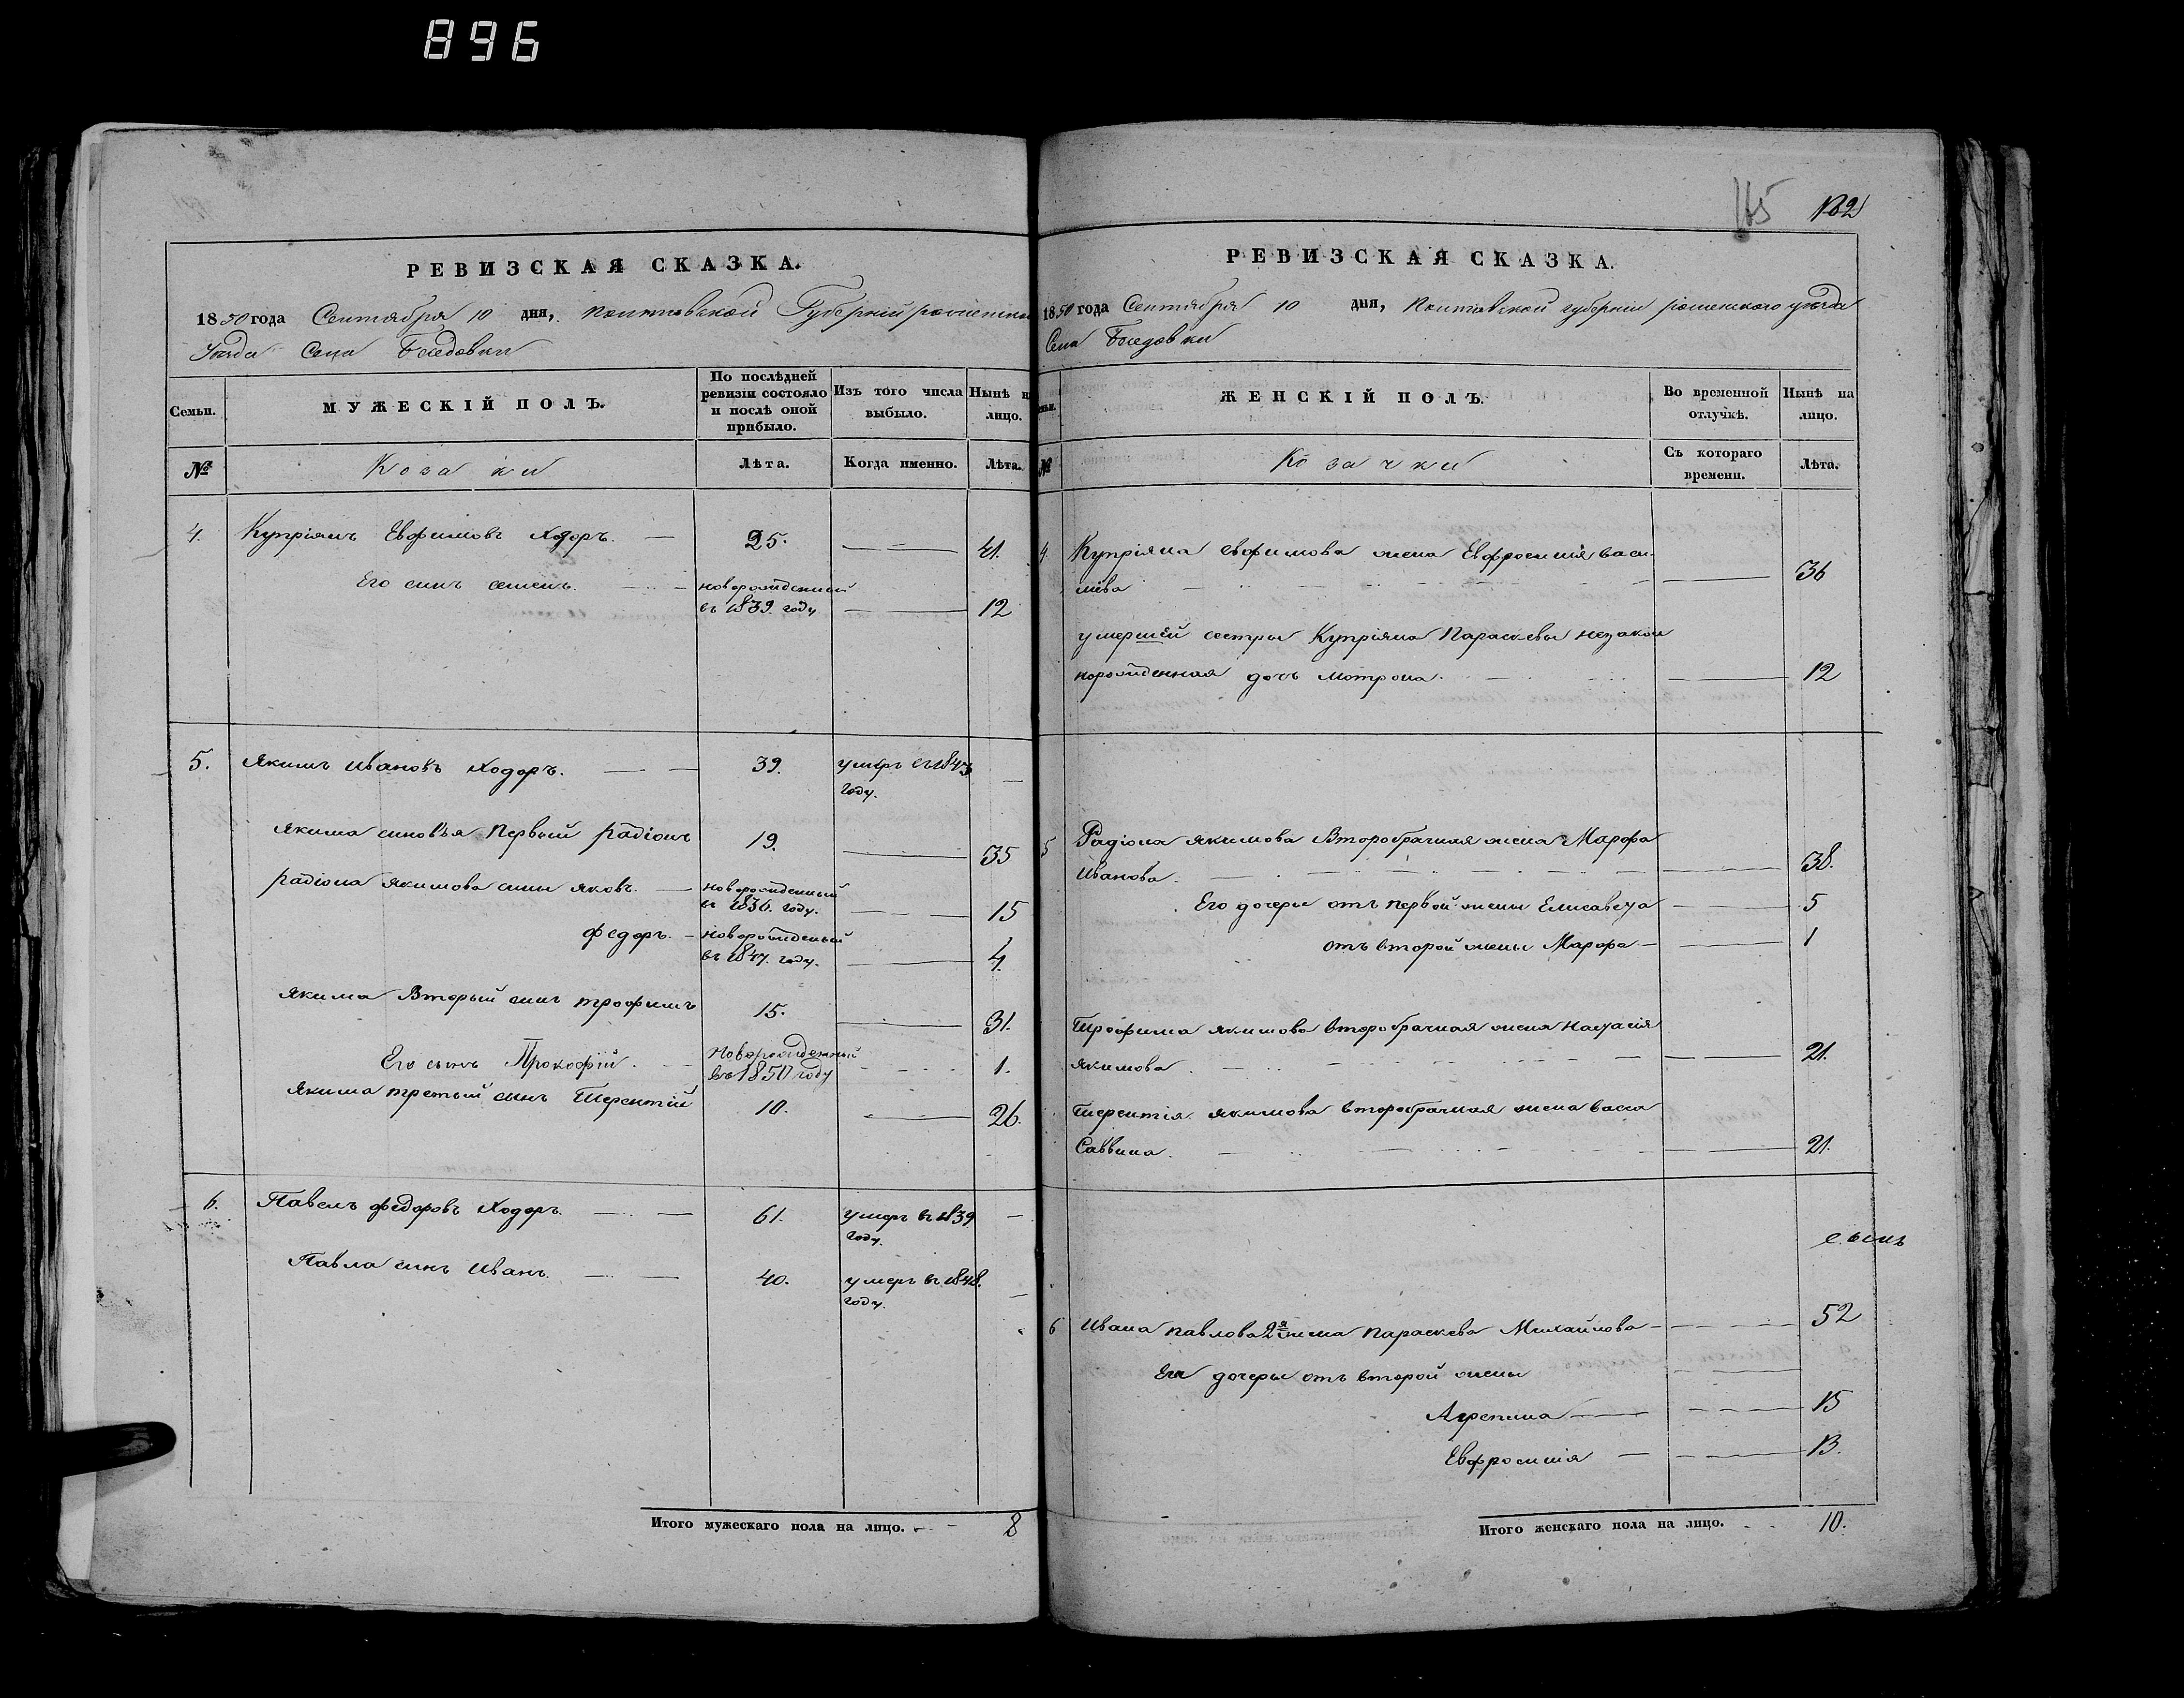 896
РЕВИЗСКАЯ СКАЗКА.
1850 года Сентября 10 дня, Полтавской Губерніи роменскаго
Уезда Села Беседовки
Семьи.
МУЖЕСКІЙ ПОЛЪ.
По послѣдней ревизіи состояло и послѣ оной прибыло.
Изъ того числа выбыло.
Нынѣ на лицо.
№
Козаки
Лѣта.
Когда именно.
Лѣта.
4. Купріянъ Евфимовъ Ходоръ. 25. 41.
Его сынъ семенъ. новорожденный
въ 1839. году 12
5. Якимъ Ивановъ Ходоръ. 39. умеръ въ 1843
году.
Якима сыновья Первый Радіонъ 19. 35
Радіона Якимова сыны Яковъ. новорожденный
въ 1836. году. 15
Федоръ. новорожденый
въ 1847. году. 4.
Якима Вторый сынъ трофимъ 15. 31.
Его сынъ Прокофій. Новорожденный
въ 1850 году 1.
Якима третый сынъ Терентій 10. 26.
6. Павелъ Федоровъ Ходоръ 61. умеръ въ 1839
году.
Павла сынъ Иванъ. 40. умеръ въ 1848.
году.
Итого мужескаго пола на лицо. 8
165 182
РЕВИЗСКАЯ СКАЗКА.
1850 года Сентября 10 дня, Полтавской губерніи роменского уезда
Села Беседовки
ЖЕНСКІЙ ПОЛЪ.
Во временной отлучкѣ.
Нынѣ на лицо.
№
Козачки
Съ котораго времени.
Лѣта.
4 Купріяна евфимова жена Евфросинія Васи
лиева 36
умершей сестры Купріяна Параскевы незакон
норожденная дочь Мотрона. 12
5 Радіона якимова Второбрачная жена Марфа
Иванова. 38.
Его дочеры отъ первой жены Елисавета 5
отъ второй жены Марфа 1
Трофима якимова второбрачная жена Настасія
якимова. 21.
Терентія якимова второбрачная жена Васса
Саввина. 21.
6 Ивана павлова 2я жена параскева Михайлова 52
Его дочеры отъ второй жены
Агрепина 15
Евфросинія 13.
Итого женскаго пола на лицо. 10.